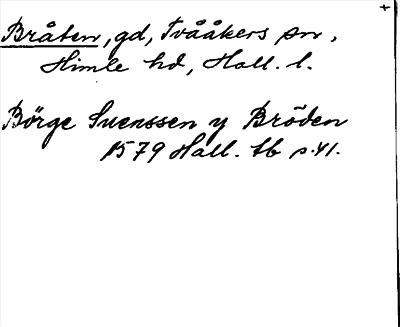 +
Bråten, gd, Tvååkers sn,
Himle hd, Hall. l.
Börge Suenssen y Bröden
1579 Hall. tb s. 41.